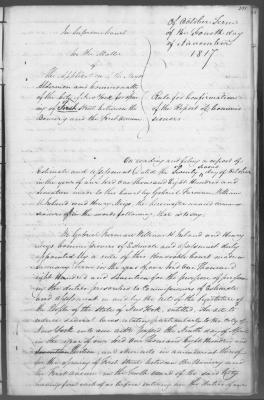 In Supreme Court
In the Matter
of
The Application of the Mayor
Aldermen and Commonalty
of the City of New York for open
ing of First Street between the
Bowery and the First Avenue
Of October Term
of the fourth day
of November
1817
Rule for confirmation
of the Report of Commis
sioners
On reading and filing a report of
Estimate and Assessment dated the Twenty second day of October
in the year of our Lord One Thousand Eight Hundred and
Seventeen made to this Court by Gabriel Furman William
W. Ireland and Henry Meigs the
sioners in the words following that is to say
We Gabriel Furman William W. Ireland and Henry
Meigs Commissioners of Estimate and Assessment duly
appointed by a rule of this Honorable Court made in
Term in the year of our Lord One Thousand
Eight Hundred and Seventeen for the purpose of perform
ing the duties prescribed to Commissioners of Estimate
and Assessment in and by the Act of the Legislature of
the People of the State of New York, entitled "An Act to
reduce several laws relating particularly to the City of
New York into one act" passed the Ninth day of April
in the year of our Lord One Thousand Eight Hundred and
Thirteen and other acts in amendment thereof
for the opening of First Street between the Bowery and
the First Avenue in the
having first and before entering on the duties of our